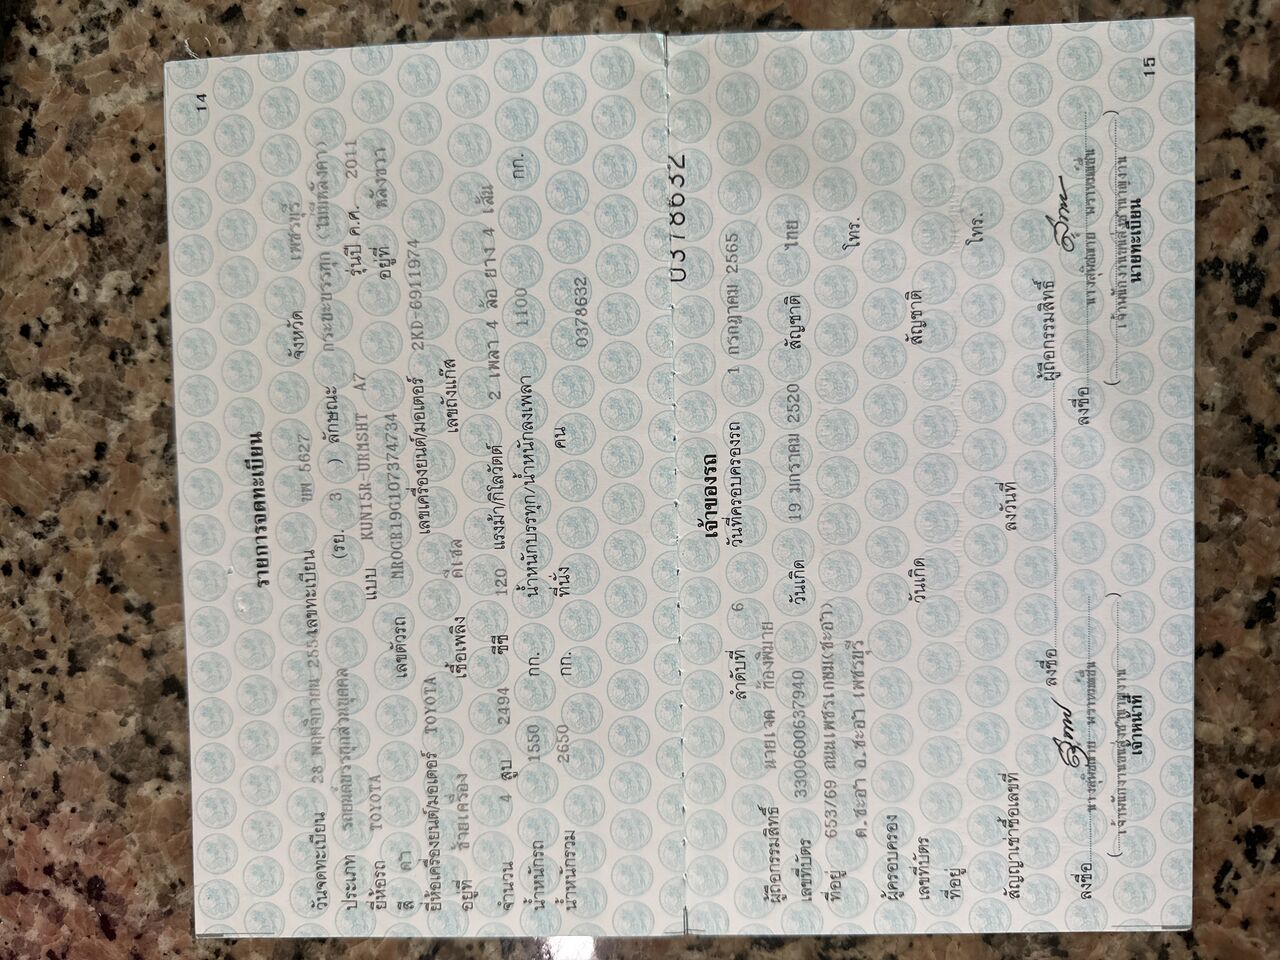 14
รายการจดทะเบียน
วันจดทะเบียน 28 พฤศจิกายน 2554 เลขทะเบียน ขพ 5627 จังหวัด เพชรบุรี
ประเภท รถยนต์บรรทุกส่วนบุคคล (รย. 3 ) ลักษณะ กระบะบรรทุก (ไม่มีหลังคา)
ยี่ห้อรถ TOYOTA แบบ KUN15R-URMSHT A7 รุ่นปี ค.ศ. 2011
สี ดำ เลขตัวรถ MROCR19G107374734 อยู่ที่ หลังขวา
ยี่ห้อเครื่องยนต์/มอเตอร์ TOYOTA เลขเครื่องยนต์/มอเตอร์ 2KD-6911974
อยู่ที่ ซ้ายเครื่อง เชื้อเพลิง ดีเซล เลขถังแก๊ส
จำนวน 4 สูบ 2494 ซีซี 120 แรงม้า/กิโลวัตต์ 2 เพลา 4 ล้อ ยาง 4 เส้น
น้ำหนักรถ 1550 กก. น้ำหนักบรรทุก/น้ำหนักลงเพลา 1100 กก.
น้ำหนักรวม 2650 กก. ที่นั่ง คน 0378632
0378632
เจ้าของรถ
ลำดับที่ 6 วันที่ครอบครองรถ 1 กรกฎาคม 2565
ผู้ถือกรรมสิทธิ์ นายเจต ก้องพิมาย
เลขที่บัตร 3300600637940 วันเกิด 19 มกราคม 2520 สัญชาติ ไทย
ที่อยู่ 653/69 ถนนเพชรเกษม(ชะอำ)
ต.ชะอำ อ.ชะอำ เพชรบุรี โทร.
ผู้ครอบครอง
เลขที่บัตร วันเกิด สัญชาติ
ที่อยู่
โทร.
สัญญาเช่าซื้อเลขที่ ลงวันที่
ลงชื่อ ผู้ถือกรรมสิทธิ์
ลงชื่อ ลงชื่อ
เจ้าหน้าที่ นายทะเบียน
15